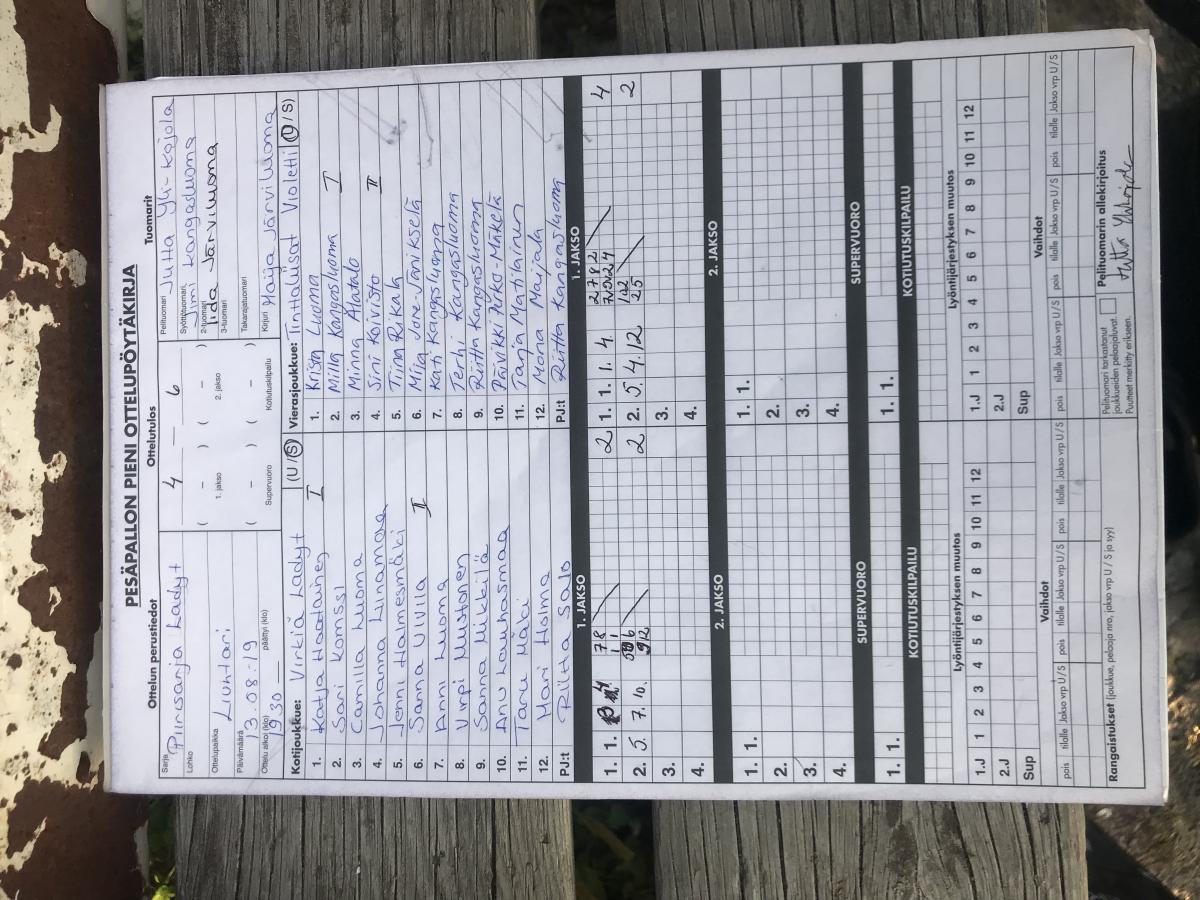 PESÄPALLON PIENI OTTELUPÖYTÄKIRJA
Ottelun perustiedot
Sarja Piirisarja Ladyt
Lohko
Ottelupaikka Luhtari
Päivämäärä 13.08.19
Ottelu alkoi (klo) 19.30 päättyi (klo)
Ottelutulos
4 — 6
( – ) ( – )
1. jakso 2. jakso
( – ) ( – )
Supervuoro Kotiutuskilpailu
Tuomarit
Pelituomari Jutta Yli-Kojola
Syöttötuomari Jimi Kangasluoma
2-tuomari Iida Järviluoma
3-tuomari
Takarajatuomari
Kirjuri Maija Järviluoma
Kotijoukkue: Virkiä Ladyt (U/S)
1. Katja Haatainen I
2. Sari Komssi
3. Camilla Luoma
4. Johanna Liinamaa
5. Jenni Halmesmäki
6. Sanna Ulvila II
7. Anni Luoma
8. Virpi Mustonen
9. Sanna Mikkilä
10. Anu Lauhasmaa
11. Taru Mäki
12. Mari Holma
PJ:t Riitta Salo
Vierasjoukkue: Tinttaluisat Violetti (U/S)
1. Krista Luoma
2. Milla Kangasluoma I
3. Minna Ala-talo
4. Sini Koivisto II
5. Tiina Rikala
6. Miia Jone-Jänikselä
7. Kati Kangasluoma
8. Terhi Kangasluoma
9. Riitta Kangasluoma
10. Päivikki Pirko-Mäkelä
11. Tarja Matilainen
12. Mona Majala
PJ:t Riitta Kangasluoma
1. JAKSO
1. 1. 2
2. 5. 7. 10. 2
3.
4.
1. JAKSO
1. 1. 1. 4. 2 7 8 2 4
2. 5. 4. 12 2
3.
4.
2. JAKSO
1. 1.
2.
3.
4.
2. JAKSO
1. 1.
2.
3.
4.
SUPERVUORO
1. 1.
SUPERVUORO
1. 1.
KOTIUTUSKILPAILU
KOTIUTUSKILPAILU
Lyöntijärjestyksen muutos
1.J 1 2 3 4 5 6 7 8 9 10 11 12
2.J
Sup
Lyöntijärjestyksen muutos
1.J 1 2 3 4 5 6 7 8 9 10 11 12
2.J
Sup
Vaihdot
pois tilalle Jakso vrp U/S pois tilalle Jakso vrp U/S pois tilalle Jakso vrp U/S
Vaihdot
pois tilalle Jakso vrp U/S pois tilalle Jakso vrp U/S pois tilalle Jakso vrp U/S
Rangaistukset (joukkue, pelaaja nro, jakso vrp U / S ja syy)
Pelituomari tarkastanut
joukkueiden pelaajaluvat.
Puutteet merkitty erikseen.
Pelituomarin allekirjoitus